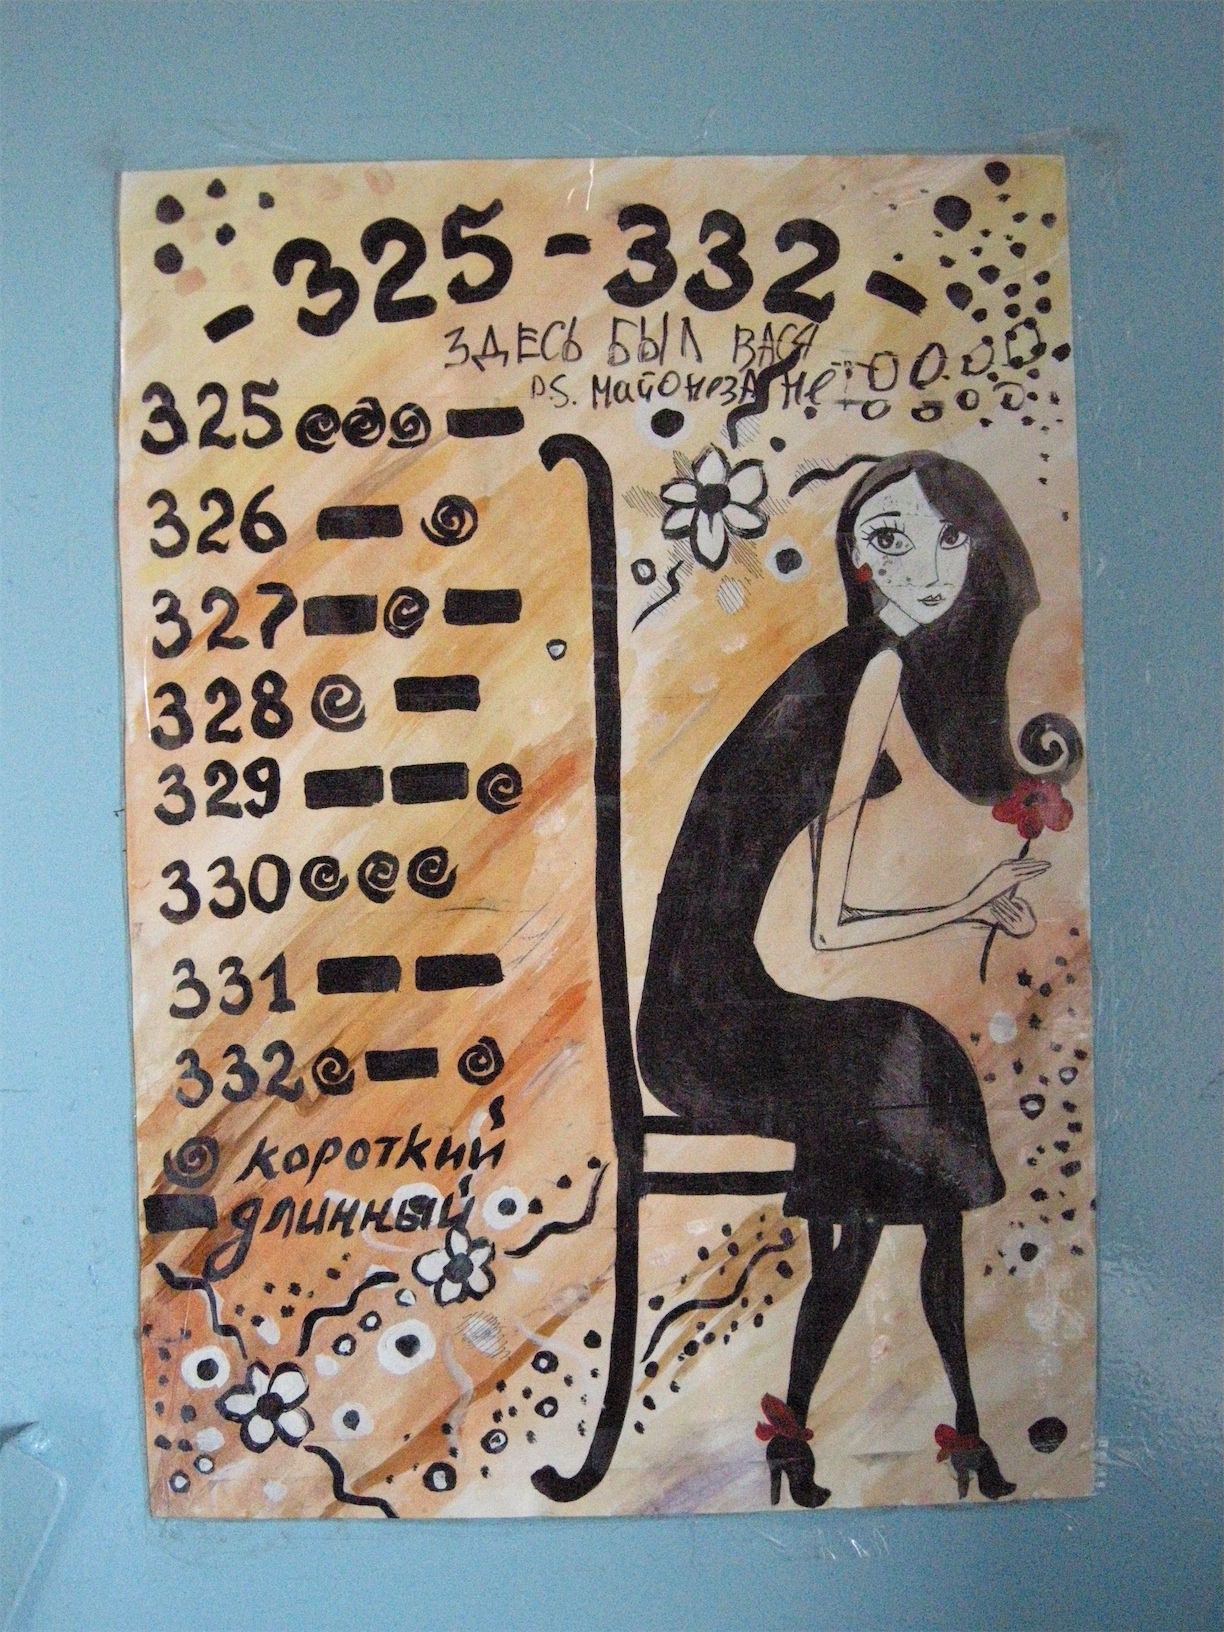 - 325 - 332 -
ЗДЕСЬ БЫЛ ВАСЯ
P.S. Майонеза не
325
326
327
328
329
330
331
332
короткий
длинный